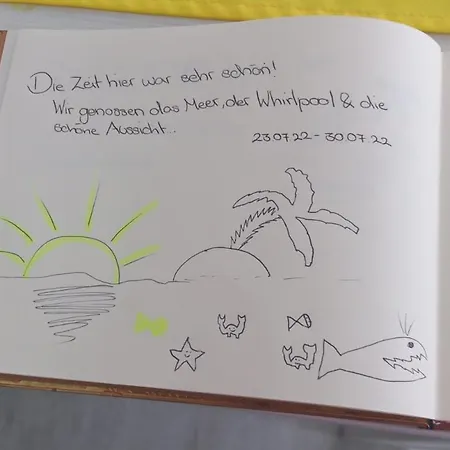 Die Zeit hier war sehr schön!
Wir genossen das Meer, der Whirlpool & die
schöne Aussicht...
23.07.22 - 30.07.22